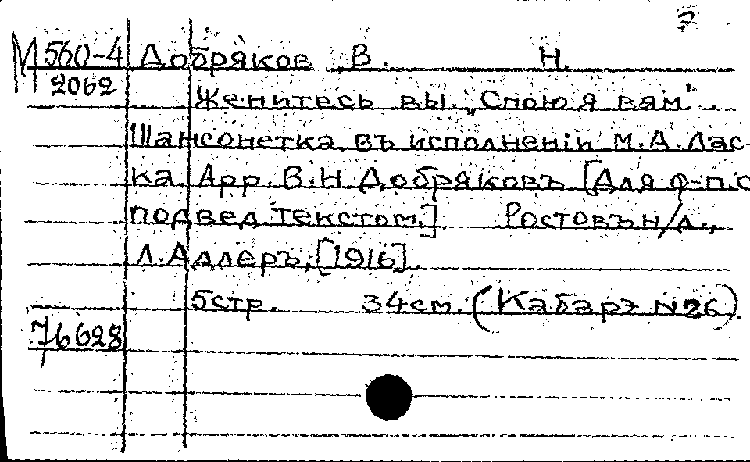 М 560-4 Добряков В. Н.
2062
Женитесь вы. "Спою я вам".
Шансонетка въ исполненіи М.А. Лас-
ка. Арр. В.Н. Добряковъ. [Для ф-п. с
подвед. текстом.] Ростовъ н/Д.,
Л. Адлеръ, [1916].
5 стр. 34 см. (Кабарэ N 26).
76628